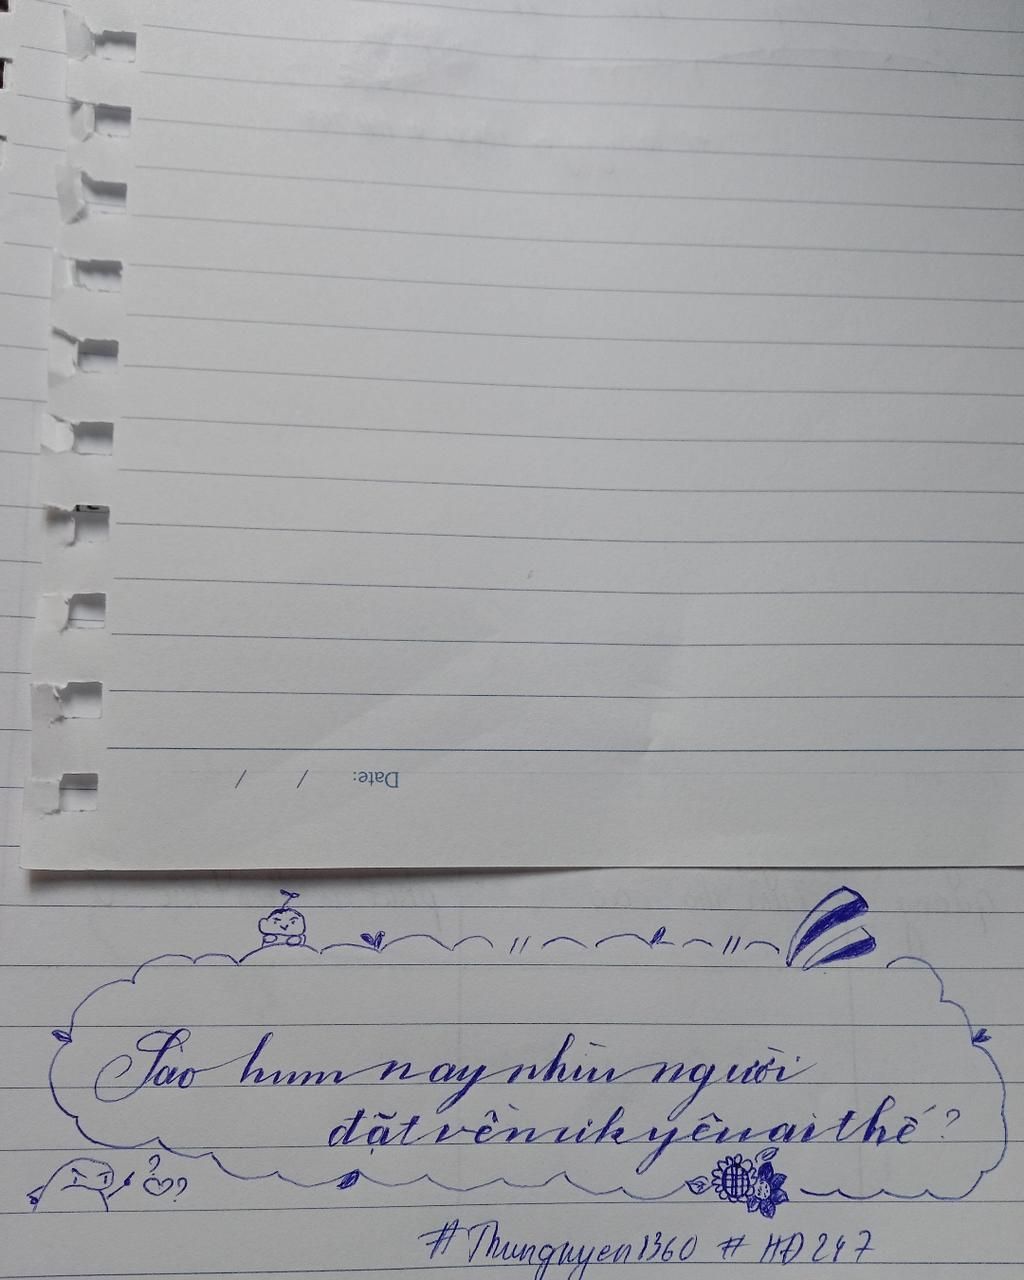 Date: / /
Sao hum nay nhìn người
đặt vền mik yêu ai thế?
#Thunguyen1360 #HĐ247